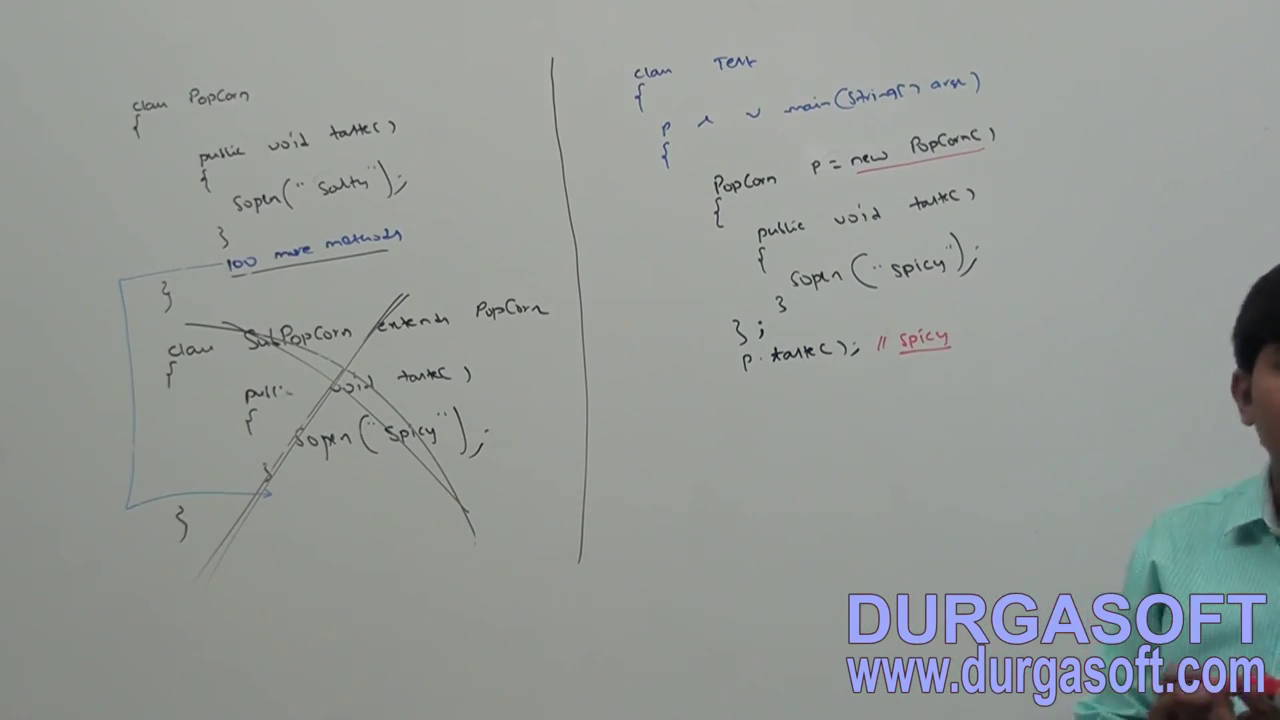 class PopCorn
{
public void taste()
{
sopln("salty");
}
100 more methods
}
class SubPopCorn extends PopCorn
{
public void taste()
{
sopln("spicy");
}
}
class Test
{
p s v main(String[] args)
{
PopCorn p = new PopCorn()
{
public void taste()
{
sopln("spicy");
}
};
p.taste(); // spicy
DURGASOFT
www.durgasoft.com